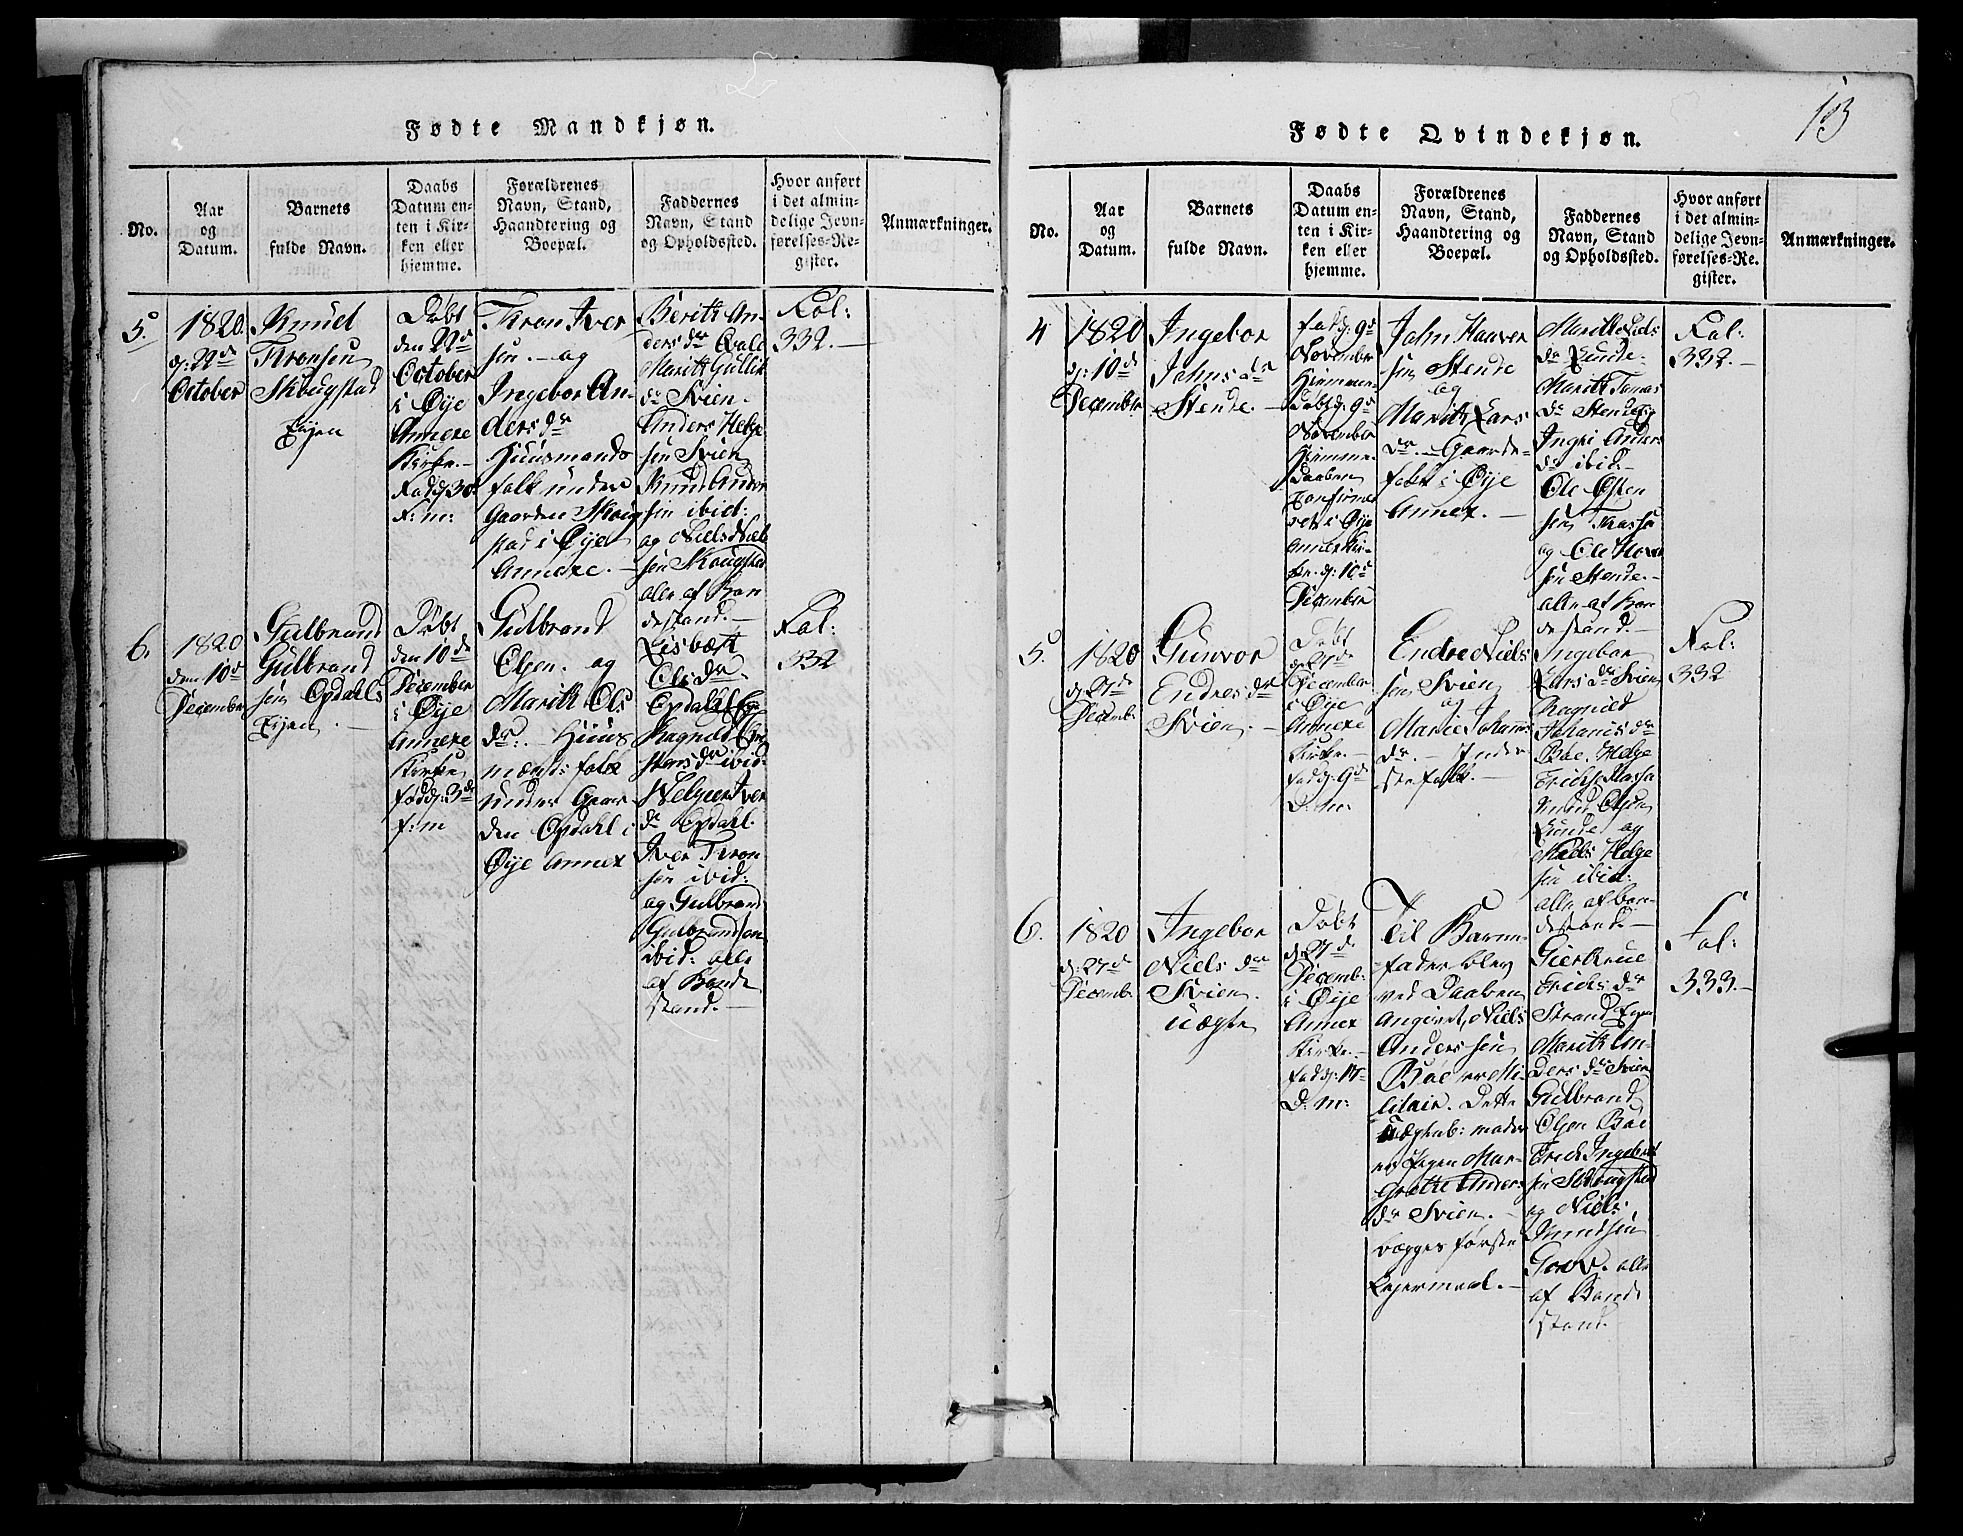 13
Fødte Mandkjøn.
No.
Aar
og
Datum.
Barnets
fulde Navn.
Daabs
Datum en-
ten i Kir-
ken eller
hjemme.
Forældrenes
Navn, Stand,
Haandtering og
Boepæl.
Faddernes
Navn, Stand
og Opholdssted.
Hvor anført
i det almin-
delige Jevn-
førelses-Re-
gister.
Anmærkninger.
5.
1820.
d: 22de
October
Knud
Tronsen
Skougstad
Eijen
Døbt
den 22de
October
i Øije
Annexe
Kirke.
F: m:
Tron Iver
sen. og
Ingebor An-
dersdr
Huusmands
folk under
Gaarden Skoug
stad i Øije
Annexe.
Berith An-
dersdr Qvale
Marith Gullik
dr Svien.
Anders Helge
sen Svien
Knud Ander
sen ibid:
og Niels Niel
sen Skougstad
alle af Bon
destand.
Fol:
332.
6.
1820
den 10de
December
Gulbrand
Gulbrand
sen Opdahls
Eijen.
Døbt
den 10de
December
i Øije
Annexe
Kirke
fød d: 3de
f: m
Gulbrand
Olsen. og
Marith Ols
dr. Huus
mænds folk
under Gaar
den Opdahl i
Øije Annex
Lisbæth
Olsdr
Opdahl
Ragnild
stensdr ibid:
Iver
dr Opdahl.
Iver Tron
sen ibid:
og Gulbrand
Gulbrandsen
ibid: alle
af Bonde
stand.
Fol:
332
Fødte Qvindekjøn.
No.
Aar
og
Datum.
Barnets
fulde Navn.
Daabs
Datum en-
ten i Kir-
ken eller
hjemme.
Forældrenes
Navn, Stand,
Haandtering og
Boepæl.
Faddernes
Navn, Stand
og Opholdssted.
Hvor anført
i det almin-
delige Jevn-
førelses-Re-
gister.
Anmærkninger.
4
1820
d: 10de
December
Ingebor
Johnsdr
Stende.
fød d: 9de
November
Hiemme
døbt d: 9de
November
Hiemme
daaben
Confirme
ret i Øije
Annex Kir-
ke d: 10de
December
John Haaver
sen Stende
og
Marith Lars
dr. Gaard-
folk i Øije
Annex.
Marith Niels
dr Lunde.
Marith Tomas
dr Stende
Ingri Anders
dr ibid.
Ole Østen
sen
og Ole Haver
sen Stende.
alle af Bon
destand.
Fol:
332.
5.
1820
d: 27de
Decemb:
Gunvor
Endresdr
Svien.
Døbt
d: 27de
December
i Øije
Annexe
Kirke.
fød d: 9de
D: m:
Endre Niels
sen Svien
og
Marie Johans
dr. Inder
stefolk.
Ingebor
Larsdr Svien
Ragnild
Johanisdr
Boe. Helge
Erichs.
Knud Olsen
Lunde og
Niels Helge
sen ibid:
alle af bon-
destand.
Fol:
332
6.
1820
d: 27de
Decemb:
Ingebor
Nielsdr
Svien.
uægte
Døbt
d: 27de
Decemb:
i Øije
Annex
Kirke.
D: m:
Til Barne-
fader blev
ved Daaben
angivet, Niels
Andersen
Boe
litair. Dette
mode
r Pigen Mar-
grethe Anders
dr Svien.
begges første
Leiermaal.
Giertrue
Erichsdr
Strand Eijen
Marith An-
dersdr Svien
Gulbrand
Olsen Boe
Erich Ingebret
sen Skougstad
og Niels
Knudsen
alle
af Bonde
stand.
Fol:
333.